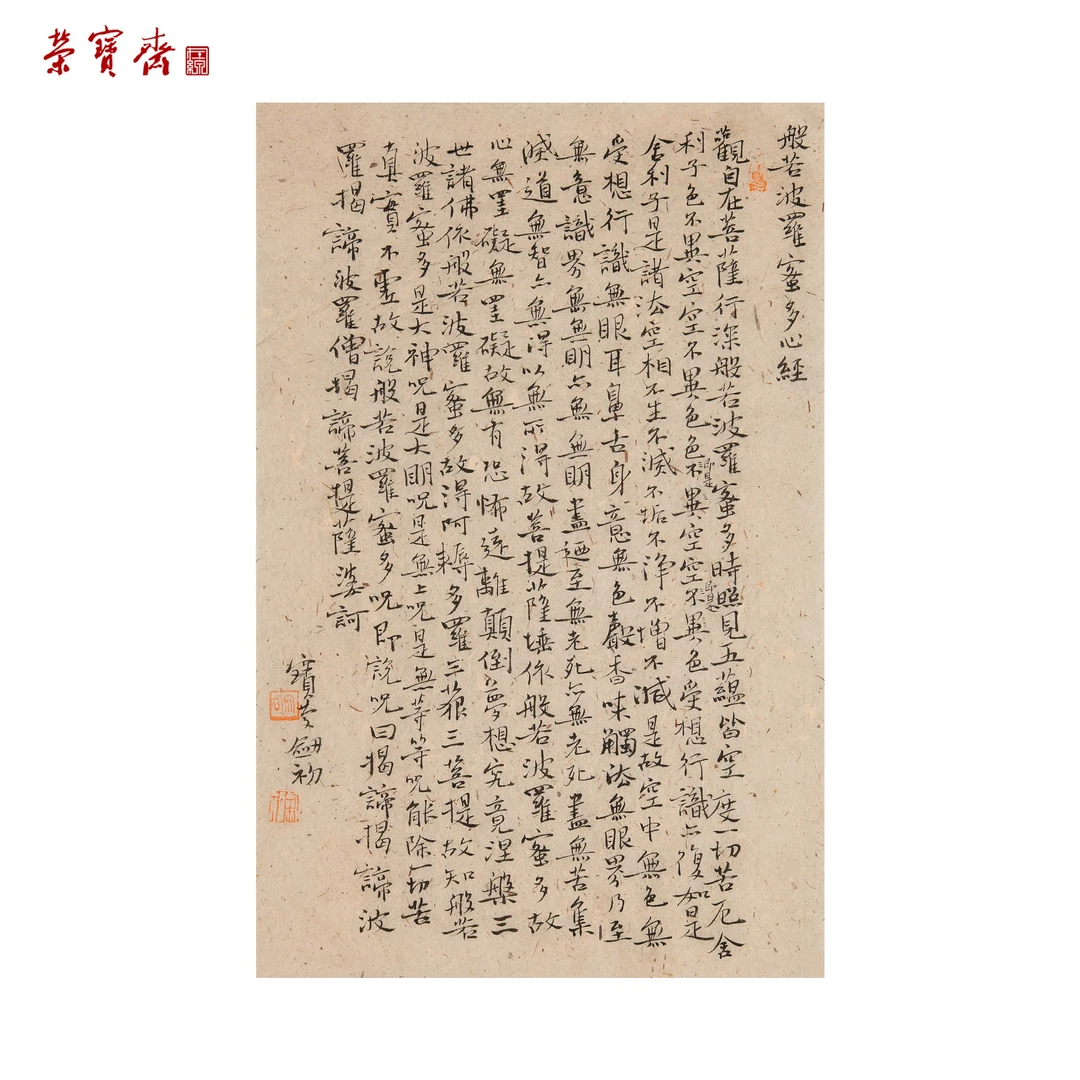 榮寶齋
般若波羅蜜多心經
觀自在菩薩行深般若波羅蜜多時照見五蘊皆空度一切苦厄舍
利子色不異空空不異色色不異空空不異色受想行識亦復如是
即是
即是
舍利子是諸法空相不生不滅不垢不淨不增不減是故空中無色無
受想行識無眼耳鼻舌身意無色聲香味觸法無眼界乃至
無意識界無無明亦無無明盡廼至無老死亦無老死盡無苦集
滅道無智亦無得以無所得故菩提薩埵依般若波羅蜜多故
心無罣礙無罣礙故無有恐怖遠離顛倒夢想究竟涅槃三
世諸佛依般若波羅蜜多故得阿耨多羅三藐三菩提故知般若
波羅蜜多是大神呪是大明呪是無上呪是無等等呪能除一切苦
真實不虛故說般若波羅蜜多呪即說呪曰揭諦揭諦波
羅揭諦波羅僧揭諦菩提薩婆訶
寶劍初